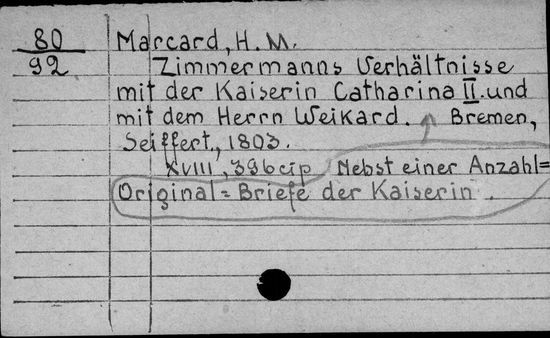 80 Marcard, H. M.
92 Zimmermanns Verhältnisse
mit der Kaiserin Catharina II. und
mit dem Herrn Weikard. Bremen,
Seiffert., 1803.
XVIII, 396 стр Nebst einer Anzahl=
Original=Briefe der Kaiserin.